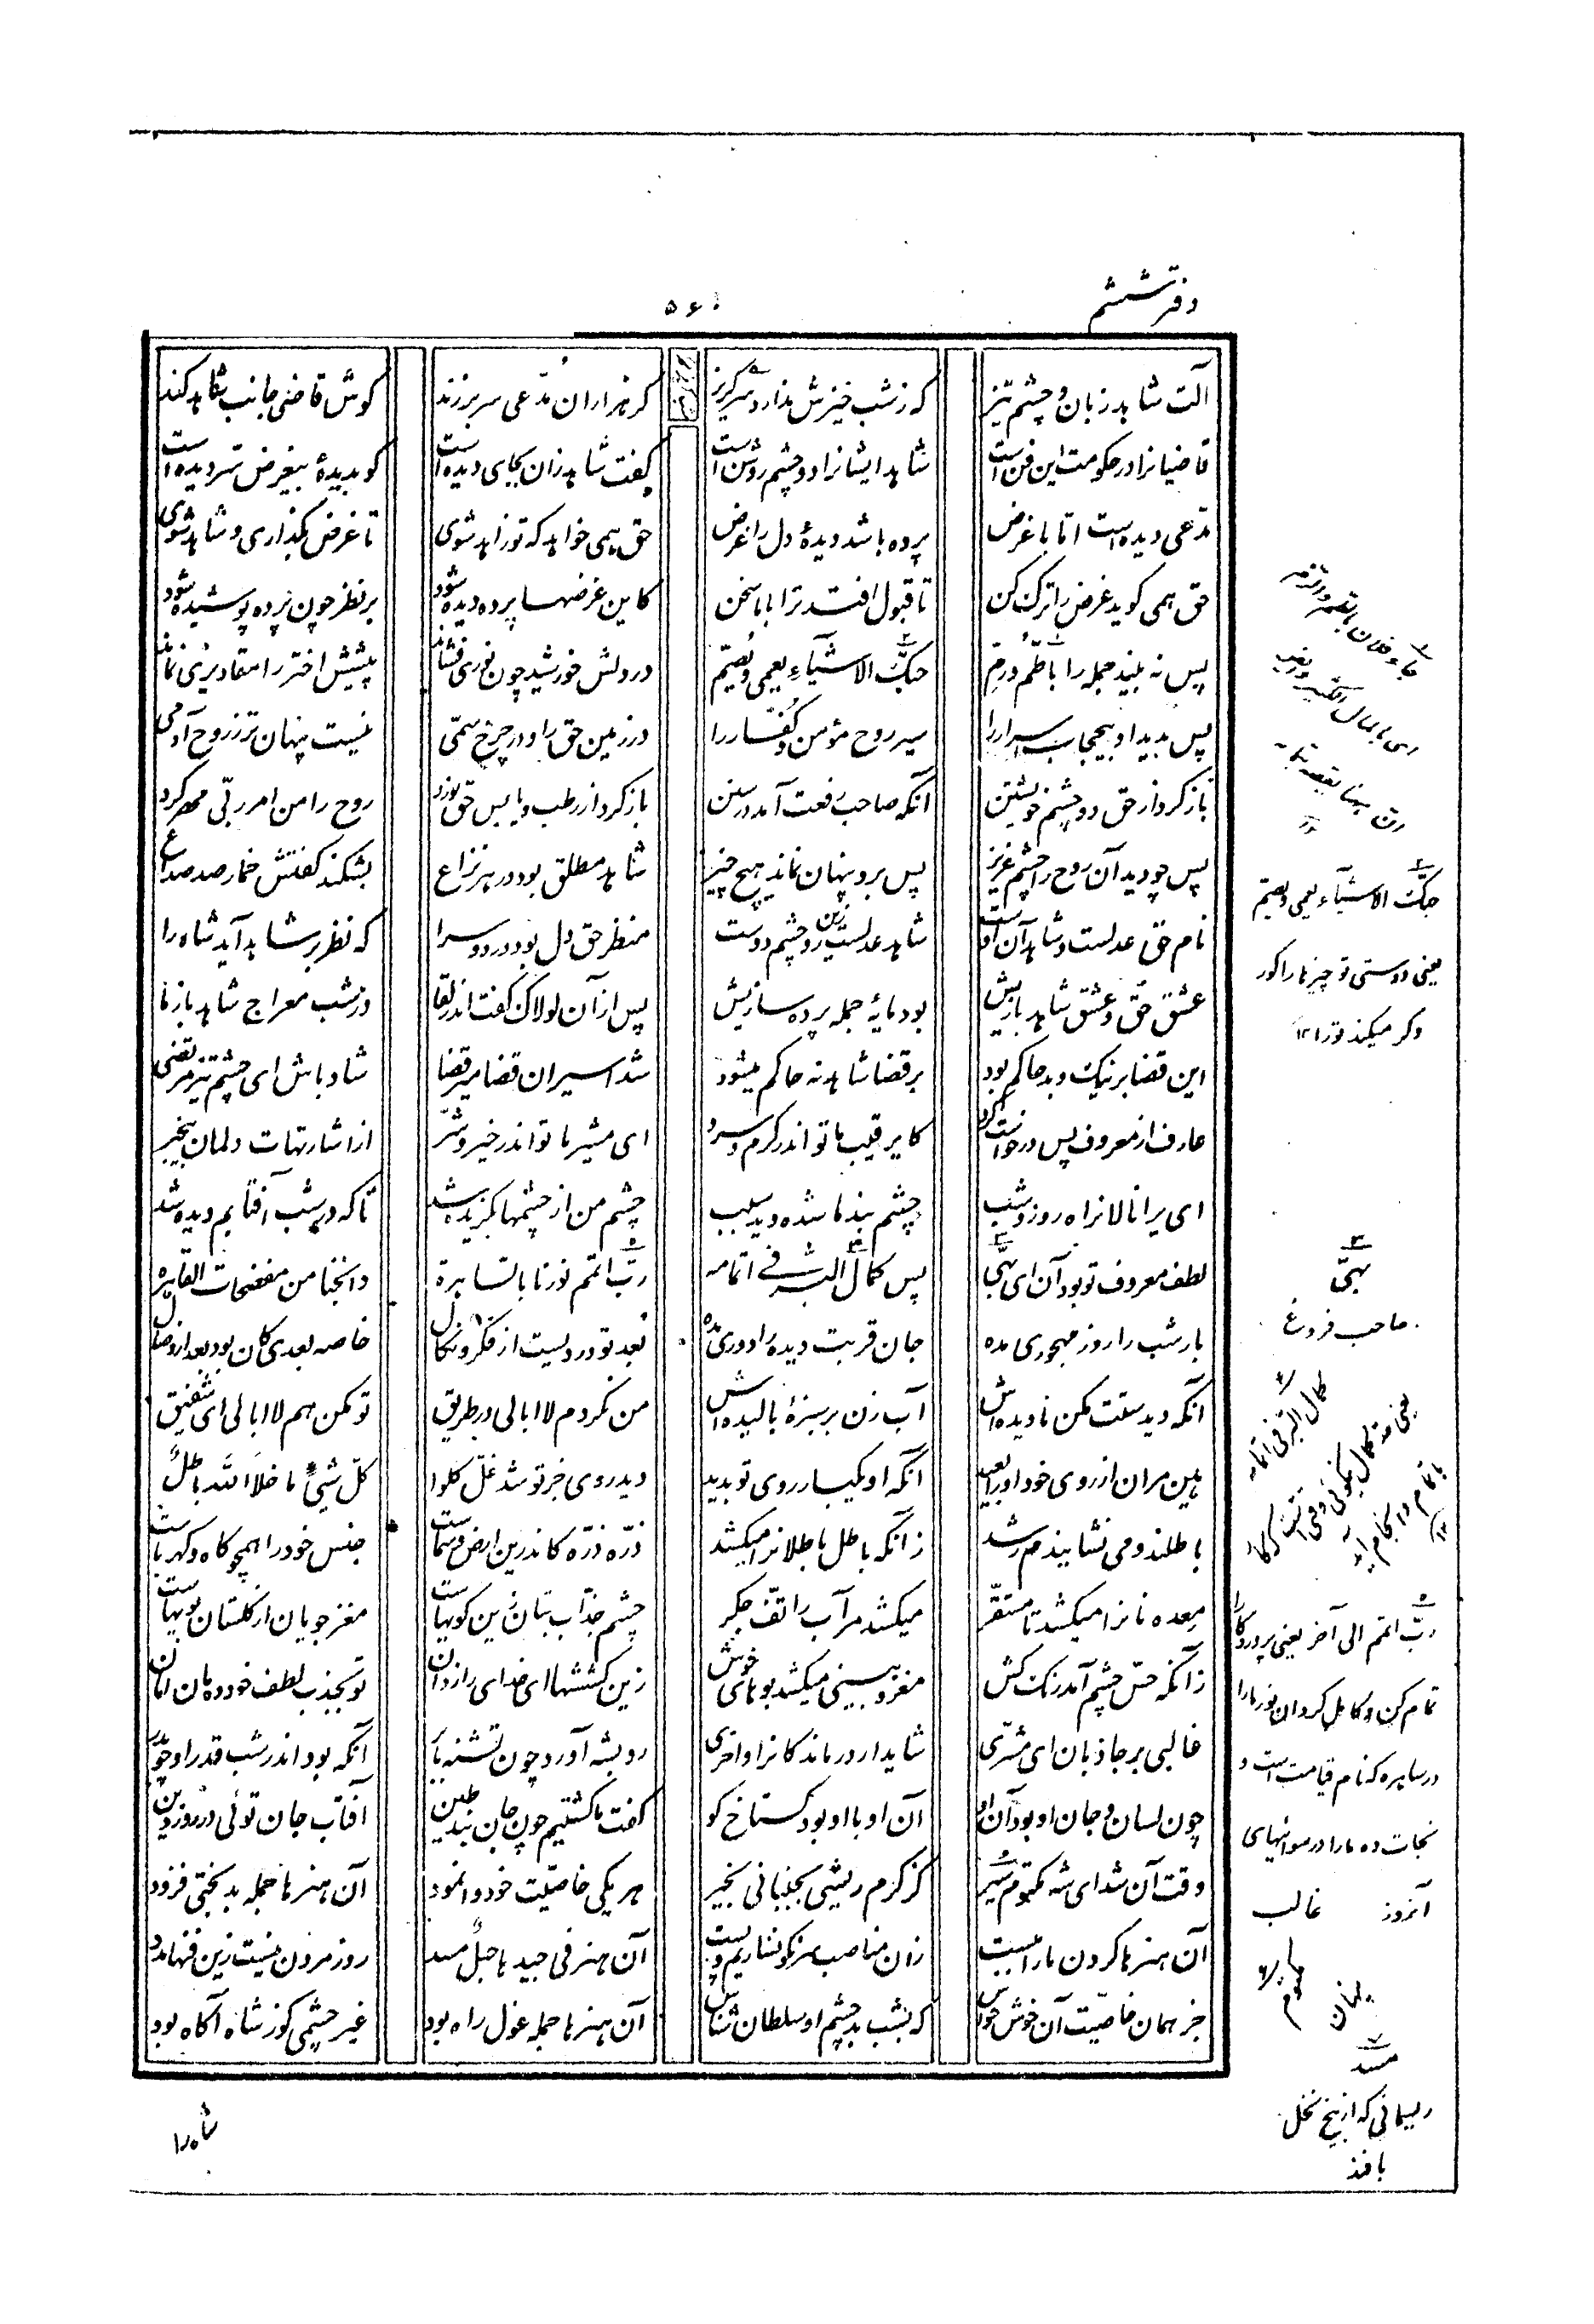 دفتر ششم
۵۶۰
آلت شاهد زبان و چشم تیز	که ز شب خیزش ندارد سر گریز	گر هزاران مدّعی سر بر زند	گوش قاضی جانب شاهد کند
قاضیانرا در حکومت این فن است	شاهد ایشانرا دو چشم روشن است	گفت شاهد زان بجای دیده است	کو بدیدهٔ بیغرض سر دیده است
مدّعی دیده است امّا با غرض	پرده باشد دیدهٔ دل را غرض	حق همی خواهد که تو زاهد شوی	تا غرض بگذاری و شاهد شوی
حق همی گوید غرض را ترک کن	تا قبول افتد ترا با ما سخن	کاین غرضها پرده دیده شود	بر نظر چون پرده پوشیده شود
پس نه بیند جمله را با طمّ و رمّ	حبّک الاشیآء یعمی و یُصمّ	در دلش خورشید چون نوری فشاند	پیشش اختر را مقادیری نماند
پس بدید او بیحجاب اسرار را	سیر روح مؤمن و کفّار را	در زمین حق را و در چرخ سمّی	نیست پنهان تر ز روح آدمی
باز کرد از حق دو چشم خویشتن	آنکه صاحب رفعت آمد در سنن	باز کرد از رطب و یابس حق نورد	روح را من امر ربّی مهر کرد
پس چو دید آن روح را چشم عزیز	پس برو پنهان نماند هیچ چیز	شاهد مطلق بود در هر نزاع	بشکند گفتش خمار صد صداع
نام حق عدلست و شاهد آن اوست	شاهد عدلست زین رو چشم دوست	منظر حق دل بود در دو سرا	که نظر بر شاهد آید شاه را
عشق حق و عشق شاهد بازیش	بود مایهٔ جمله پرده سازیش	پس از آن لولاک گفت اندر لقا	در شب معراج شاهد باز ما
این قضا بر نیک و بد حاکم بود	بر قضا شاهد نه حاکم میشود	شد اسیر آن قضا میر قضا	شاد باش ای چشم تیز مرتضی
عارف از معروف پس درخواست کرد	کای رقیب ما تو اندر گرم و سرد	ای مشیر ما تو اندر خیر و شرّ	از اشارتهات دلمان بیخبر
ای یرانا لا نراه روز و شب	چشم بند ما شده دید سبب	چشم من از چشمها بگزیده شد	تا که در شب آفتابم دیده شد
لطف معروف تو بود آن ای بهی	پس کمال البر فی اتمامه	ربّ اتمم نورنا بالساهره	و انجنا من مفضحات القاهره
یار شب را روز مهجوری مده	جان قربت دیده را دوری مده	بعد تو دردیست از فکر و نکال	خاصه بعدی کان بود بعد از وصال
آنکه دیدستت مکن نادیده اش	آب زن بر سبزهٔ بالیده اش	من نکردم لا ابالی در طریق	تو مکن هم لا ابالی ای شفیق
هین مران از روی خود او را بعید	آنکه او یکبار روی تو بدید	دید روی جز تو شد غلّ گلو	کلّ شیئٍ ما خلا اللّه باطلٌ
باطلند و می نمایندم رشد	زانکه باطل باطلانرا میکشد	ذرّه ذرّه کاندرین ارض و سماست	جنس خود را همچو کاه و کهرباست
معده نانرا میکشد تا مستقر	میکشد مر آب را تفّ جگر	چشم جذّاب بتان زین کویهاست	مغز جویان از گلستان بویهاست
زانکه حسّ چشم آمد رنگ کش	مغز و بینی میکشد بوهای خوش	زین کششها ای خدای رازدان	تو بجذب لطف خودمان ده امان
غالبی بر جاذبان ای مشتری	شاید ار درماندگانرا واخری	رو بشه آورد چون تشنه بابر	آنکه بود اندر شب قدر او چو بدر
چون لسان و جان او بود آن او	آن او با او بود گستاخ گو	گفت ما گشتیم چون جان بند طین	آفتاب جان توئی در روز دین
وقت آن شد ای شه مکتوم سیر	کز کرم ریشی بجنبانی بخیر	هر یکی خاصیّت خود وانمود	آن هنرها جمله بدبختی فزود
آن هنرها گردن ما را ببست	زان مناصب سرنگونساریم و پست	آن هنر فی جیدها حبلٌ مسد	روز مردن نیست زین فنها مدد
جز همان خاصیّت آن خوش حواس	که بشب بد چشم او سلطان شناس	آن هنرها جمله غول راه بود	غیر چشمی کو ز شاه آگاه بود
حبّک الاشیآء یعمی و یصمّ
یعنی دوستی تو چیزها را کور
و کر میکند تو را ۱۲
۳
بهیّ
صاحب فروغ
کمال البر فی اتمامه
ربّ اتمم الی آخر یعنی پروردگارا
تمام کن و کامل گردان نور ما را
در ساهره که نام قیامت است و
نجات ده ما را از رسوائیهای
آنروز غالب
مسد
ریسمانی که از بیخ نخل
بافند
شاه را